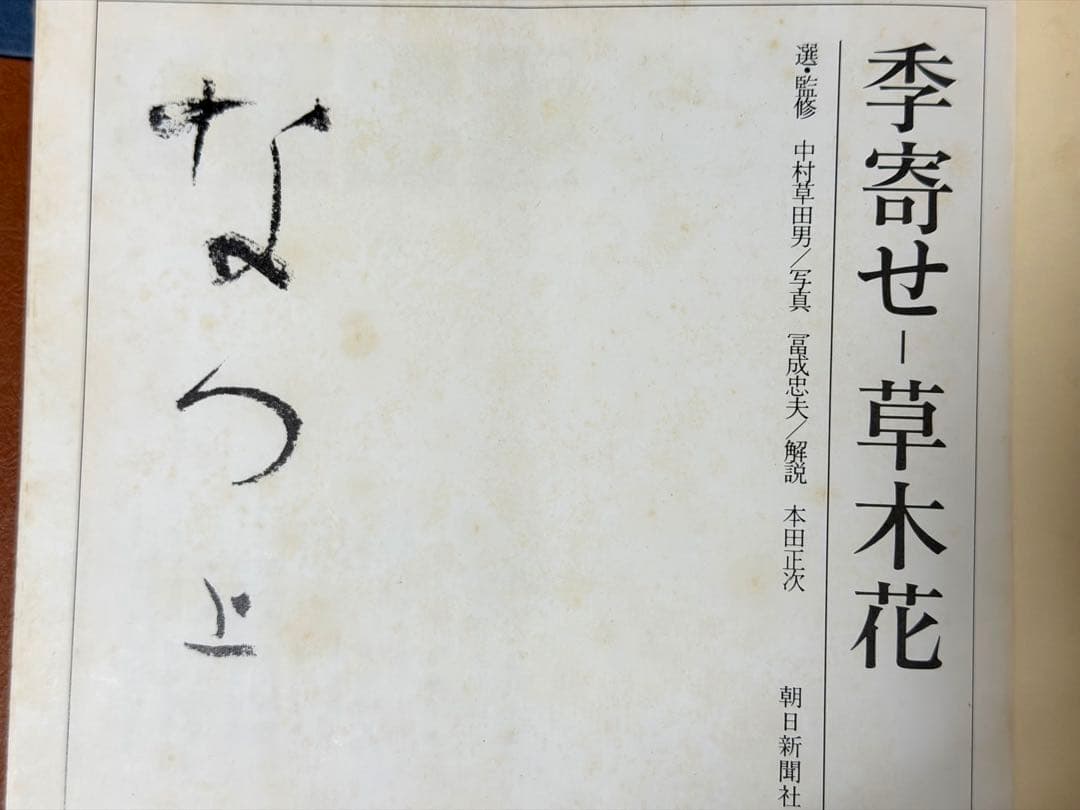 季寄せ－草木花
選・監修　中村草田男／写真　冨成忠夫／解説　本田正次
朝日新聞社
なつ上